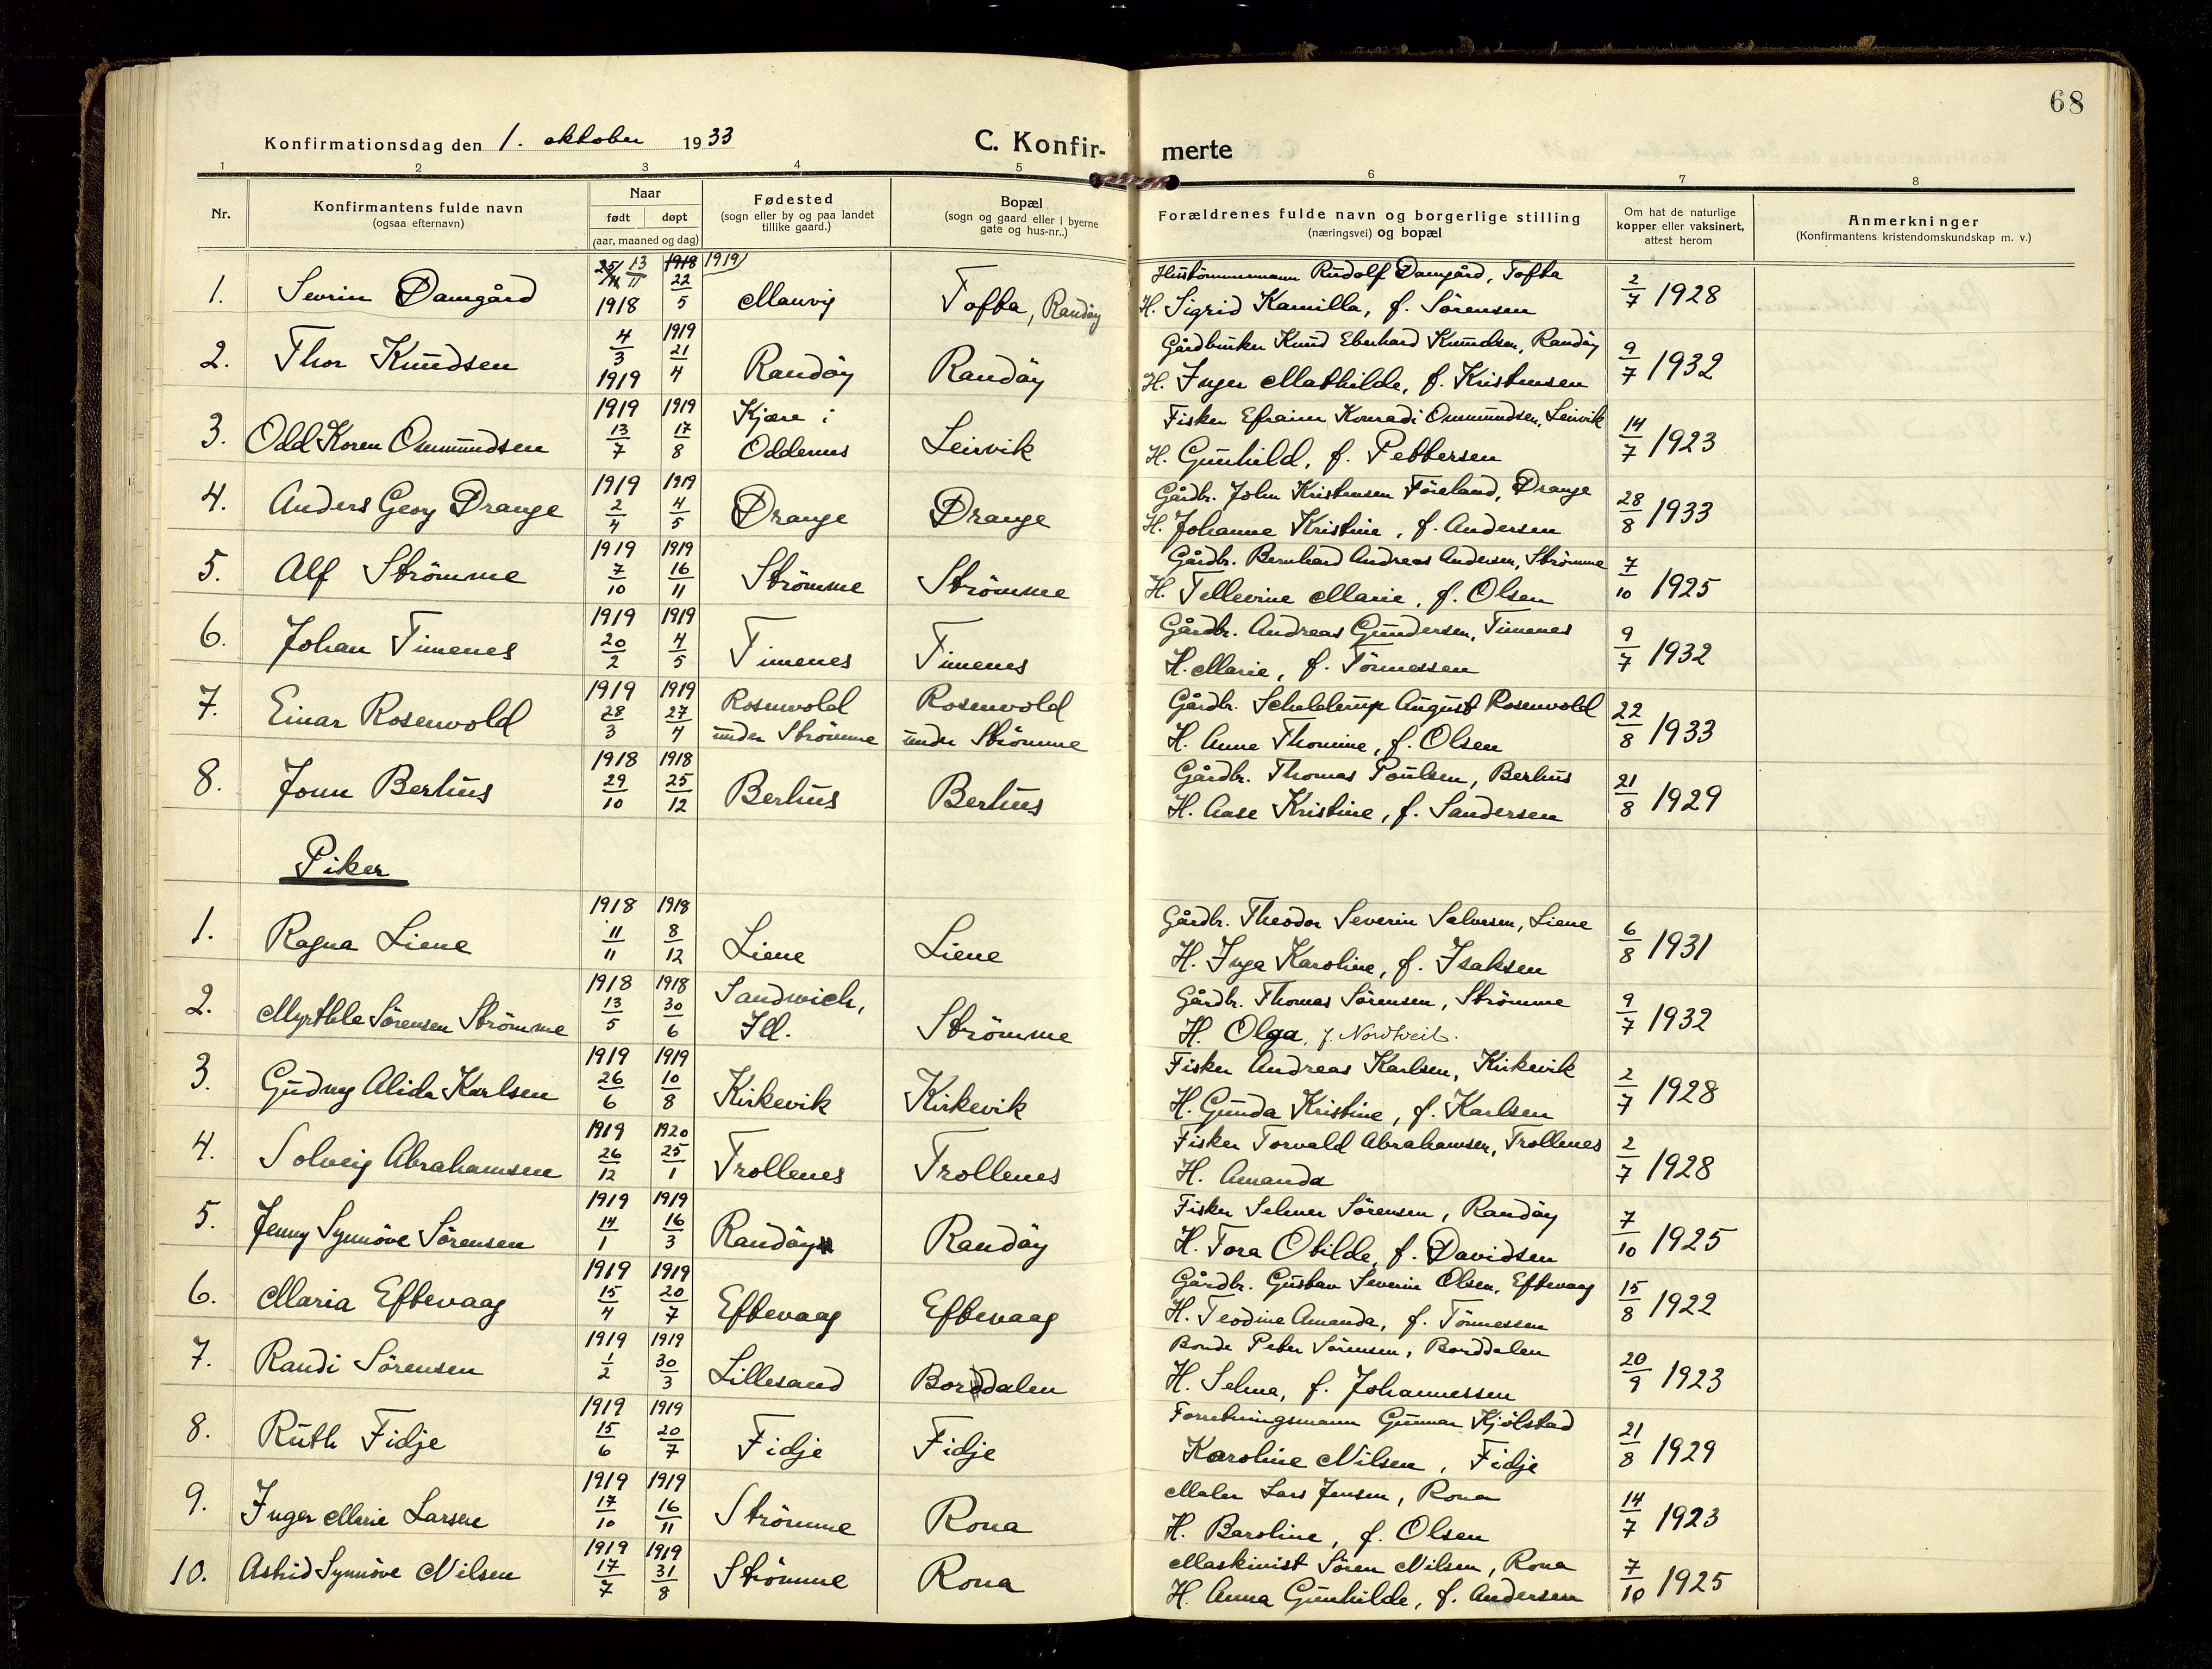 68
Konfirmationsdag den 1. oktober 1933 C. Konfir- merte
1 2 3 4 5 6 7 8
Nr. Konfirmantens fulde navn (ogsaa efternavn) Naar født døpt (aar, maaned og dag) Fødested (sogn eller by og paa landet tillike gaard.) Bopæl (sogn og gaard eller i byerne gate og hus-nr..) Forældrenes fulde navn og borgerlige stilling (næringsvei) og bopæl Om hat de naturlige kopper eller vaksinert, attest herom Anmerkninger (Konfirmantens kristendomskundskap m. v.)
1. Sevrin Damgård 13/11 1918 1919 22/5 Mauvig Tofta, Randöy Rudolf Damgård, Tofta
H. Sigrid Kamilla, f. Sörensen 2/7 1928
2. Thor Knudsen 4/3 1919 1919 21/4 Randöy Randöy Gårdbruker Knud Eberhard Knudsen, Randöy
H. Inger Mathilde, f. Kristensen 9/7 1932
3. Odd Koren Ommundsen 1919 13/7 1919 17/8 Kjære i Oddernes Leirvik Fisker Efraim Konradi Ommundsen, Leirvik
H. Gunhild, f. Pettersen 14/7 1923
4. Anders Georg Drange 1919 2/4 1919 4/5 Drange Drange Gårdbr. John Kristensen Föreland, Drange
H. Johanne Kristine, f. Andersen 28/8 1933
5. Alf Strömme 1919 7/10 1919 16/11 Strömme Strömme Gårdbr. Bernhard Andreas Andersen, Strömme
H. Tellevine Marie, f. Olsen 7/10 1925
6. Johan Timenes 1919 20/2 1919 4/5 Timenes Timenes Gårdbr. Andreas Gundersen, Timenes
H. Marie, f. Tönnessen 9/7 1932
7. Einar Rosenvold 1919 28/3 1919 27/4 Rosenvold under Strömme Rosenvold under Strömme Gårdbr. Schelderup August Rosenvold
H. Anne Thomine, f. Olsen 22/8 1933
8. Jonn Berhus 1918 29/10 1918 25/12 Berhus Berhus Gårdbr. Thomas Poulsen, Berhus
H. Aase Kristine, f. Sandersen 21/8 1929
Piker
1. Ragna Liene 1918 11/11 1918 8/12 Liene Liene Gårdbr. Theodor Severin Salvesen, Liene
H. Inga Karoline, f. Isaksen 6/8 1931
2. Myrthle Sörensen Strömme 1918 13/5 1918 30/6 Sandwich, Ill. Strömme Gårdbr. Thomas Sörensen, Strömme
H. Olga, f. Nordtveit. 9/7 1932
3. Gudny Alida Karlsen 1919 26/6 1919 10/8 Kirkevik Kirkevik Fisker Andreas Karlsen, Kirkevik
H. Gunda Kristine, f. Karlsen 2/7 1928
4. Solveig Abrahamsen 1919 26/12 1920 25/1 Trollenes Trollenes Fisker Torvald Abrahamsen, Trollenes
H. Amanda 2/7 1928
5. Jenny Synnöve Sörensen 1919 14/1 1919 16/3 Randöy Randöy Fisker Selmer Sörensen, Randöy
H. Tora Otilde, f. Davidsen 7/10 1925
6. Maria Eftevaag 1919 15/4 1919 20/7 Eftevaag Eftevaag Gårdbr. Gustav Severin Olsen, Eftevaag
H. Teodine Amanda, f. Tönnessen 15/8 1922
7. Randi Sörensen 1919 1/2 1919 30/3 Lillesand Borddalen Bonde Peter Sörensen, Borddalen
H. Selma, f. Johannessen 20/9 1923
8. Ruth Fidje 1919 15/6 1919 20/7 Fidje Fidje Forretningsmann Gunnar Kjölstad
Karoline Nilsen, Fidje 21/8 1929
9. Inger Marie Larsen 1919 17/10 1919 16/11 Strömme Rona Maler Lars Jensen, Rona
H. Baroline, f. Olsen 14/7 1923
10. Astrid Synnöve Nilsen 1919 17/7 1919 31/8 Strömme Rona Maskinist Sören Nilsen, Rona
H. Anna Gunhilde, f. Andersen 7/10 1925